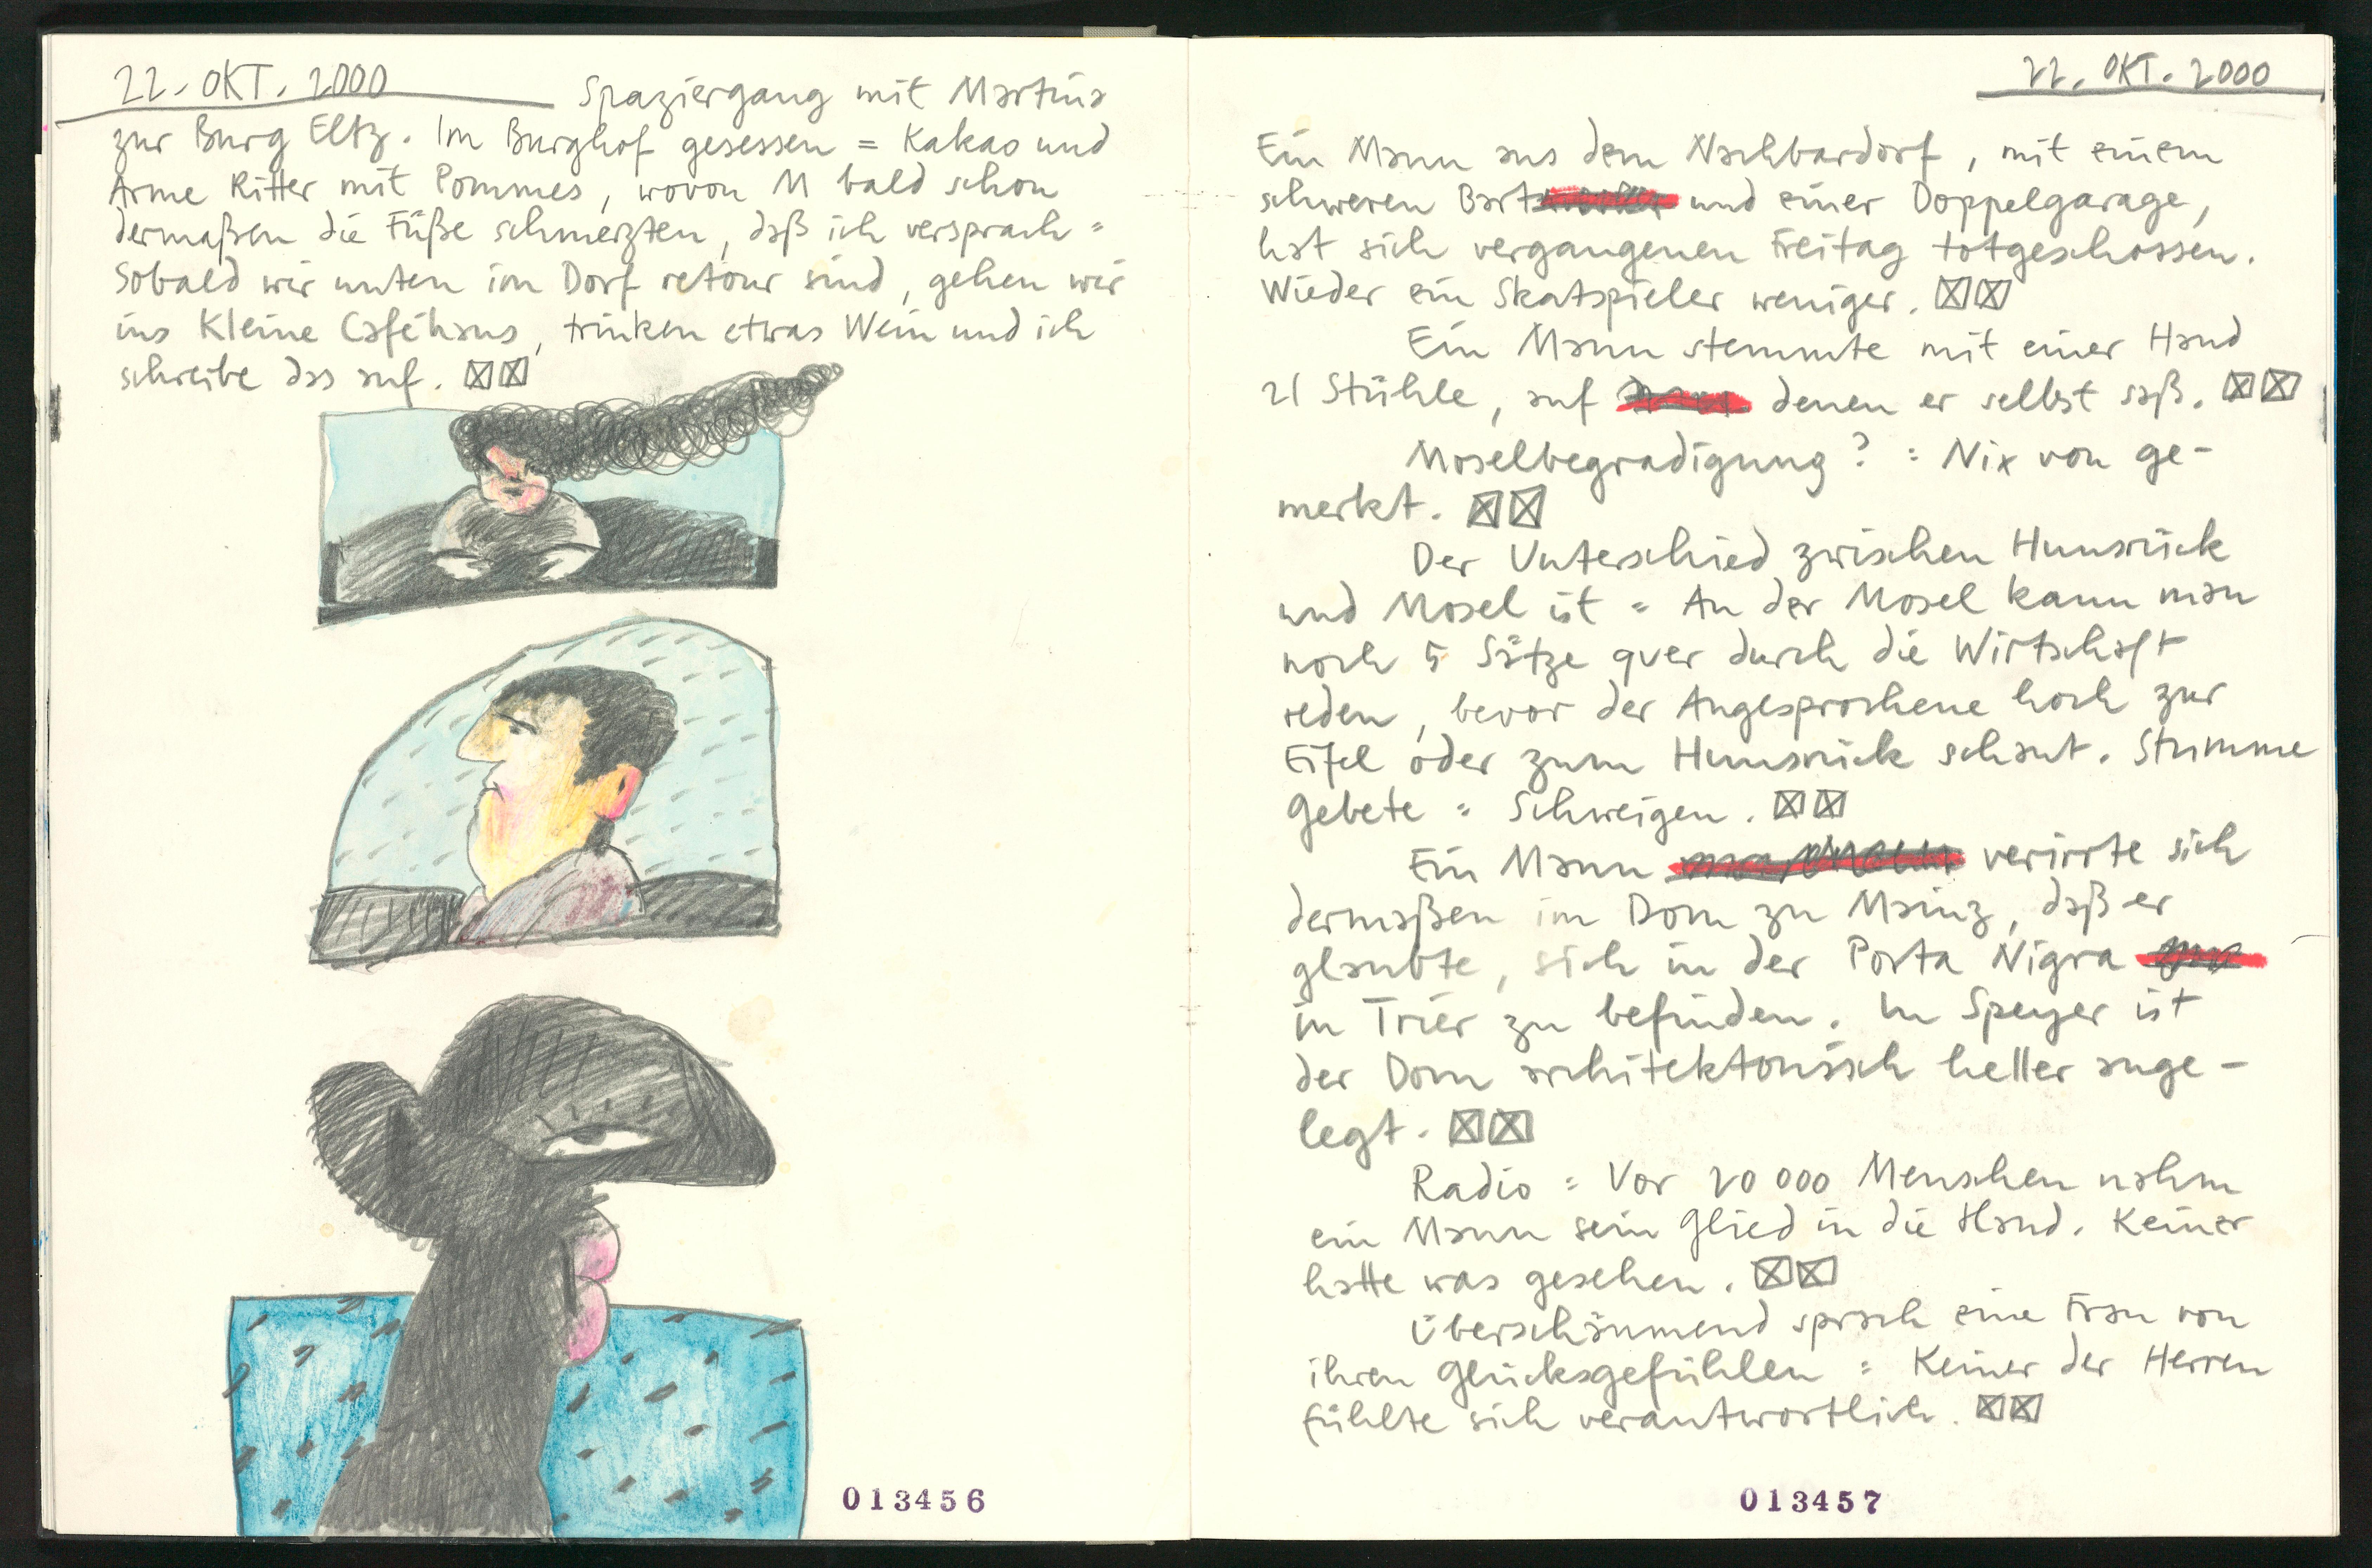 22. OKT. 2000 Spaziergang mit Martina
zur Burg Eltz. Im Burghof gesessen = Kakao und
Arme Ritter mit Pommes, wovon M bald schon
dermaßen die Füße schmerzten, daß ich versprach =
Sobald wir unten im Dorf retour sind, gehen wir
ins Kleine Caféhaus, trinken etwas Wein und ich
schreibe das auf. ☒☒
013456
22. OKT. 2000
Ein Mann aus dem Nachbardorf, mit einem
schweren Bart und einer Doppelgarage,
hat sich vergangenen Freitag totgeschossen.
Wieder ein Skatspieler weniger. ☒☒
Ein Mann stemmte mit einer Hand
21 Stühle, auf denen er selbst saß. ☒☒
Moselbegradigung? = Nix von ge-
merkt. ☒☒
Der Unterschied zwischen Hunsrück
und Mosel ist = An der Mosel kann man
noch 5 Sätze quer durch die Wirtschaft
reden, bevor der Angesprochene hoch zur
Eifel oder zum Hunsrück schaut. Stumme
Gebete = Schweigen. ☒☒
Ein Mann verirrte sich
dermaßen im Dom zu Mainz, daß er
glaubte, sich in der Porta Nigra
in Trier zu befinden. In Speyer ist
der Dom architektonisch heller ange-
legt. ☒☒
Radio = Vor 20 000 Menschen nahm
ein Mann sein Glied in die Hand. Keiner
hatte was gesehen. ☒☒
Überschäumend sprach eine Frau von
ihren Glücksgefühlen = Keiner der Herren
fühlte sich verantwortlich. ☒☒
013457